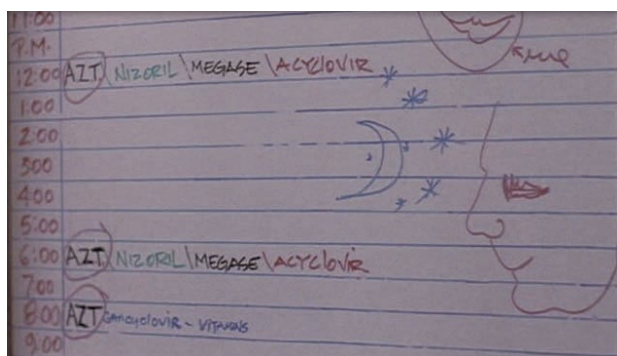 11:00
P.M.
12:00 AZT \ NIZORIL \ MEGASE \ ACYCLOVIR
1:00
2:00
300
400
5:00
6:00 AZT \ NIZOROL \ MEGASE \ ACYCLOVIR
700
8:00 AZT GANCYCLOVIR - VITAMINS
9:00